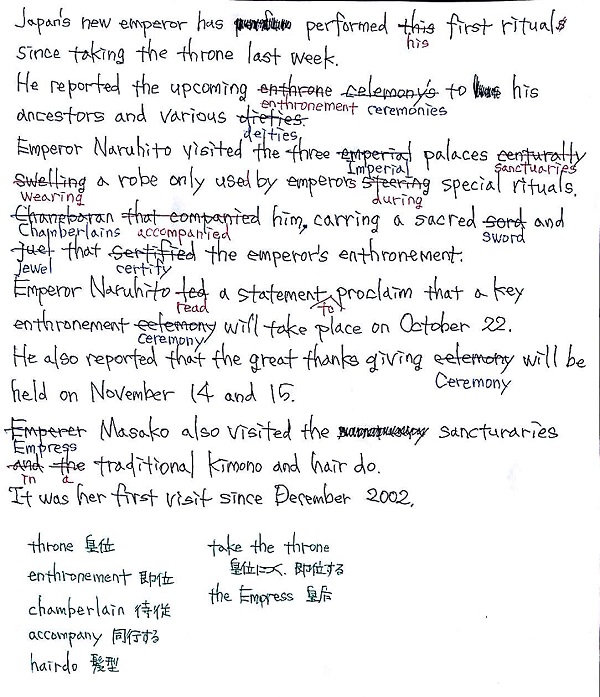 Japan's new emperor has performed this first rituals
his
since taking the throne last week.
He reported the upcoming enthrone celemony's to his
enthronement ceremonies
ancestors and various dieties.
deities,
Emperor Naruhito visited the three emperial palaces centurally
Imperial sanctuaries
swelling a robe only used by emperors steering special rituals.
wearing during
Chanebaran that companied him, carring a sacred sord and
Chamberlains accompanied sword
juel that sertified the emperor's enthronement.
Jewel certify
Emperor Naruhito ted a statement proclaim that a key
read to
enthronement celemony will take place on October 22.
ceremony
He also reported that the great thanks giving celemony will be
Ceremony
held on November 14 and 15.
Emperer Masako also visited the sancturaries
Empress
and the traditional kimono and hair do.
in a
It was her first visit since December 2002.
throne 皇位
enthronement 即位
chamberlain 侍従
accompany 同行する
hairdo 髪型
take the throne
皇位につく、即位する
the Empress 皇后